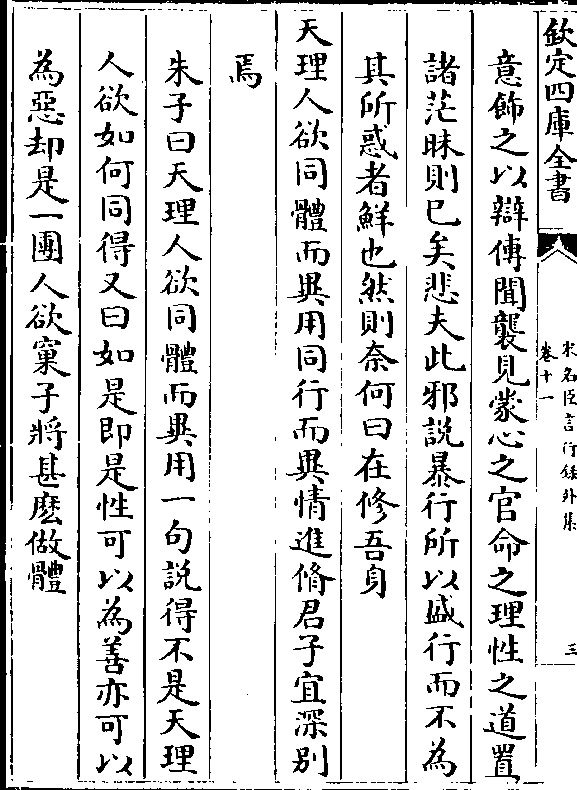 欽定四庫全書
宋名臣言行錄外集
卷十一
三
意飾之以辯傳聞襲見蒙心之官命之理性之道置
諸茫昧則已矣悲夫此邪說暴行所以盛行而不為
其所惑者鮮也然則奈何曰在修吾身
天理人欲同體而異用同行而異情進脩君子宜深別
焉
朱子曰天理人欲同體而異用一句說得不是天理
人欲如何同得又曰如是即是性可以為善亦可以
為惡却是一團人欲窠子將甚麽做體